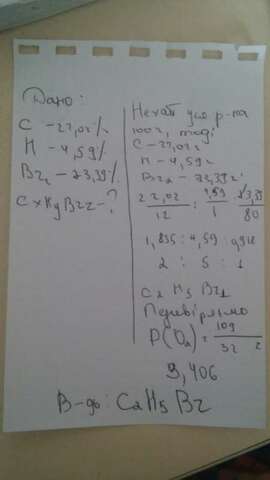 Дано:
C - 22,02%
H - 4,59%
Br - 73,39%
CxHyBrz - ?
Нехай
100г, тоді
C - 22,02г
H - 4,59г
Br - 73,39г
22,02/12 : 4,59/1 : 73,39/80
1,835 : 4,59 : 0,918
2 : 5 : 1
C2H5Br1
Перевіримо
D(O2) = 109/32 =
3,406
В-дь: C2H5Br